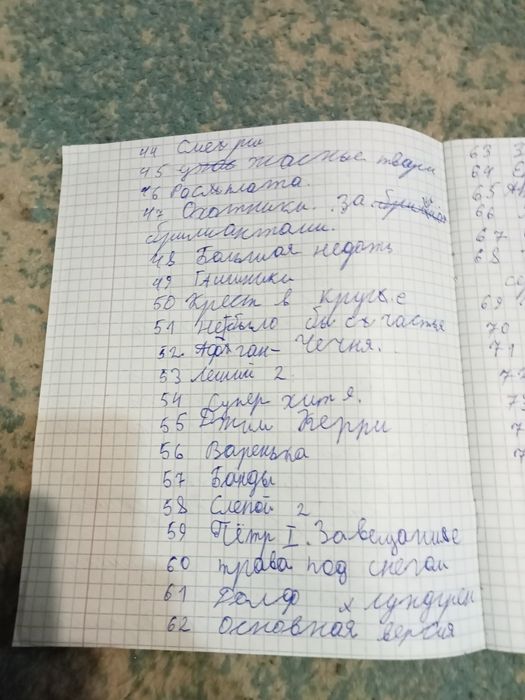 44 Смерш
45 ужас жасные твари
46 Росхплата.
47 Охотники. За
брилиантами.
48 Большая недоть
49 Гаишники
50 Крест в кругые
51 Небыло бы счастья
52 Афган-Чечня.
53 Леший 2.
54 Супер хит я.
55 Джим Керри
56 Варенька
57 Банды
58 Слепой 2
59 Пётр I. Завещание
60 трава под снегом
61 Долф х лундурен
62 основная версия
63 З
64
65
66
67
68
69
70
71